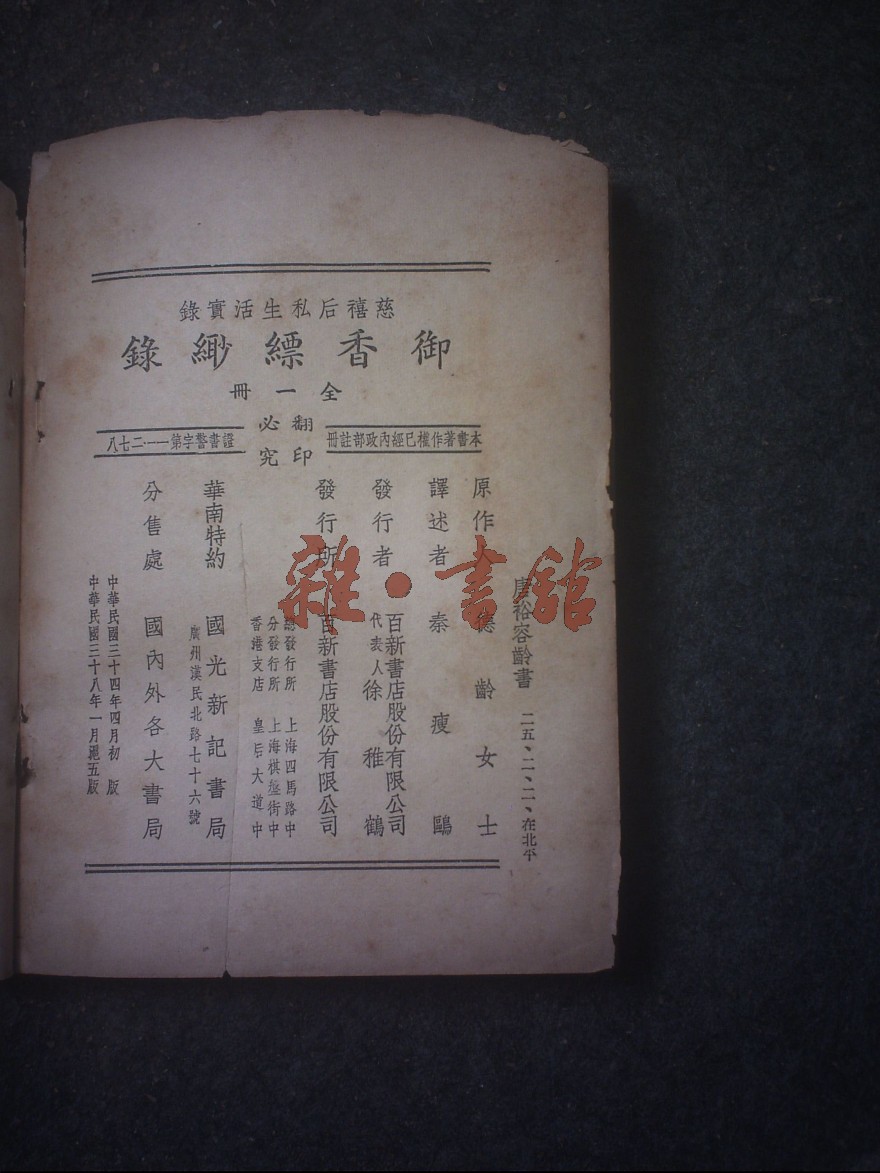 唐裕容齡書 二五、二、二、在北平
慈禧后私生活實錄
御香縹緲錄
全一冊
翻印
必究
本書著作權已經內政部註冊
證書警字第一一二七八
原作人 德齡女士
譯述者 秦瘦鷗
發行者 百新書店股份有限公司
代表人 徐稚鶴
發行所 百新書店股份有限公司
總發行所 上海四馬路中
分發行所 上海棋盤街中
香港支店 皇后大道中
華南特約 國光新記書局
廣州漢民北路七十六號
分售處 國內外各大書局
中華民國三十四年四月初版
中華民國三十八年一月五版
雜·書館